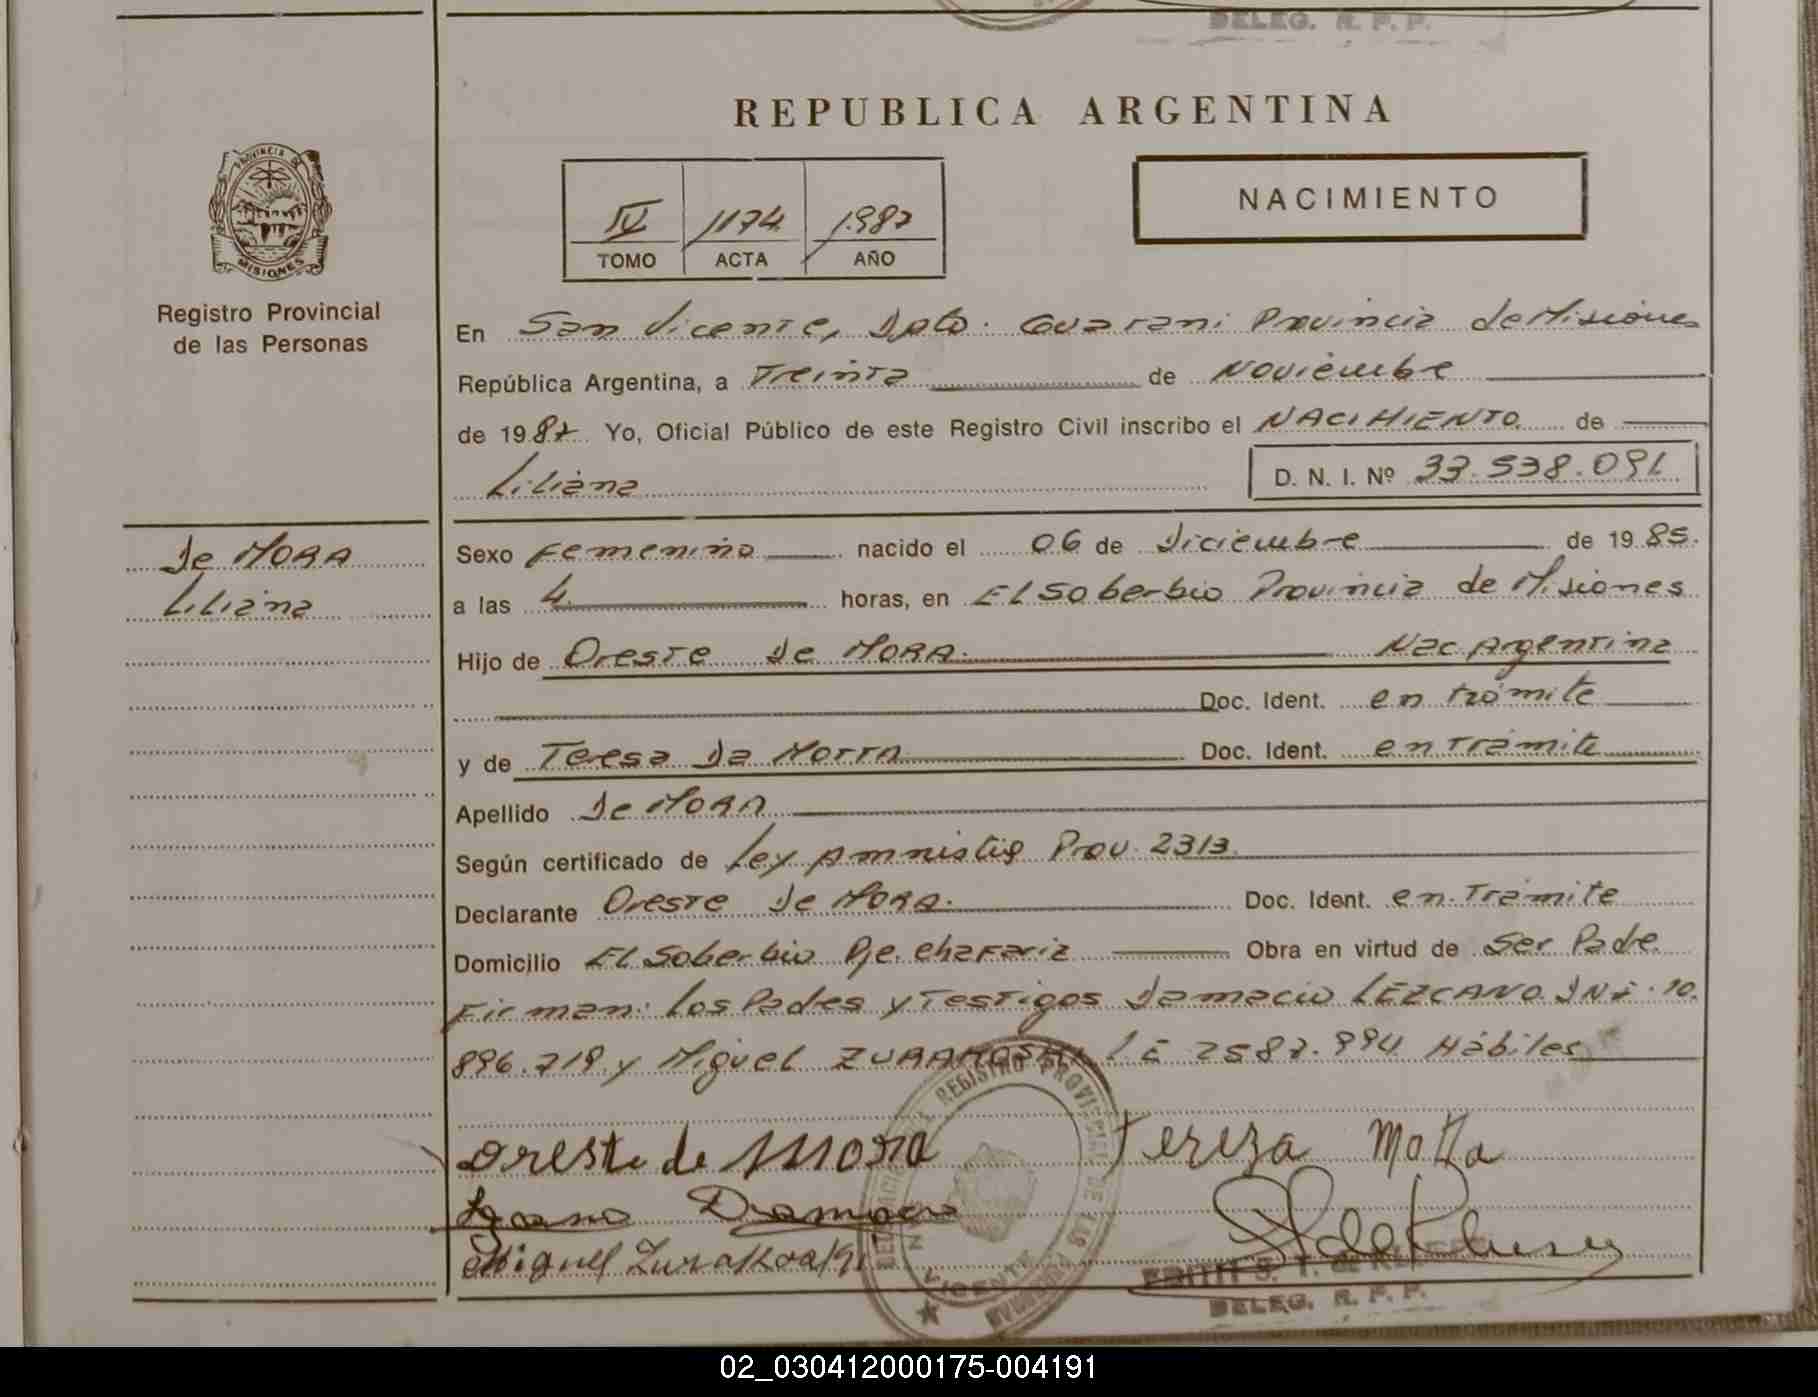 DELEG. R. P. P.
REPUBLICA ARGENTINA
PROVINCIA DE
MISIONES
Registro Provincial
de las Personas
IV 1174 1987
TOMO ACTA AÑO
NACIMIENTO
En San Vicente, Dpto. Guarani Provincia de Misiones
República Argentina, a Treinta de Noviembre
de 1987 Yo, Oficial Público de este Registro Civil inscribo el NACIMIENTO de
Liliana D. N. I. Nº 33.538.091
De MORA
Liliana
Sexo Femenino nacido el 06 de Diciembre de 1985.
a las 4 horas, en El Soberbio Provincia de Misiones
Hijo de Oreste de MORA. Nac Argentina
Doc. Ident. en trámite
y de Teresa Da Motta Doc. Ident. en trámite
Apellido De MORA
Según certificado de Ley Amnistia Prov. 2313
Declarante Oreste de MORA. Doc. Ident. en Trámite
Domicilio El Soberbio Pje. Chafariz Obra en virtud de Ser Padre
Firman: Los Pades y Testigos Damacio LEZCANO DNI. 10.
896.719 y Miguel LE 2587.994 Hábiles
Oreste de Mora Tereza Motta
Miguel
REGISTRO PROVINCIAL DE LAS PERSONAS
VICENTE
EDITH S. T. de
DELEG. R. P. P.
02_030412000175-004191